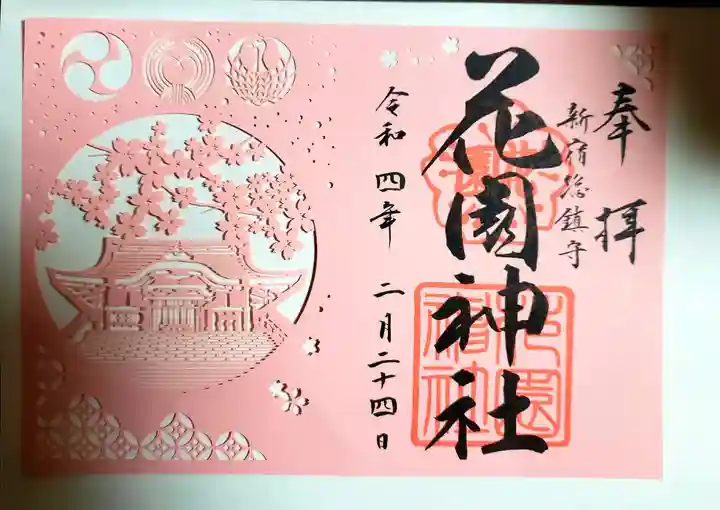 奉拝
新宿総鎮守
花園神社
令和四年 二月二十四日
花園神社